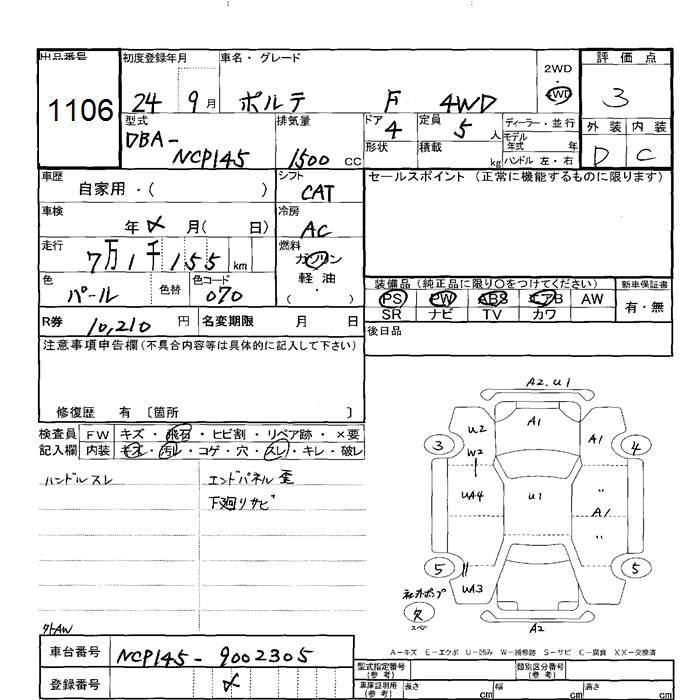 出品番号 初度登録年月 車名・グレード 2WD 評価点
1106 24 9月 ポルテ F 4WD 4WD 3
型式 排気量 ドア 定員 ディーラー・並行 外装 内装
DBA- 4 5人 モデル年式 年
NCP145 1500 CC 形状 積載 kg ハンドル 左・右 D C
車歴 自家用・( ) シフト CAT セールスポイント (正常に機能するものに限ります)
車検 年 月( 日) 冷房 AC
走行 7万1千155 km 燃料 ガソリン
軽・油
( )
色 パール 色替 色コード 070
装備品(純正品に限り○をつけてください) 新車保証書
PS PW ABS エアB AW 有・無
SR ナビ TV カワ
R券 10,210 円 名変期限 月 日 後日品
注意事項申告欄(不具合内容等は具体的に記入して下さい)
修復歴 有 〔箇所 〕
検査員 FW キズ・飛石・ヒビ割・リペア跡・×要
記入欄 内装 キズ・汚レ・コゲ・穴・スレ・キレ・破レ
ハンドルスレ エンドパネル歪
下廻りサビ
A2.U1
U2 A1 A1
3 4
W2
UA4 U1 〃
A1
〃
5 5
UA3
欠
スペ
A2
外AW
A－キズ E－エクボ U－凹み W－補修跡 S－サビ C－腐食 XX－交換済
車台番号 NCP145-9002305
型式指定番号(参考) 類別区分番号(参考)
登録番号
車庫証明用(参考) 長さ cm 幅 cm 高さ cm